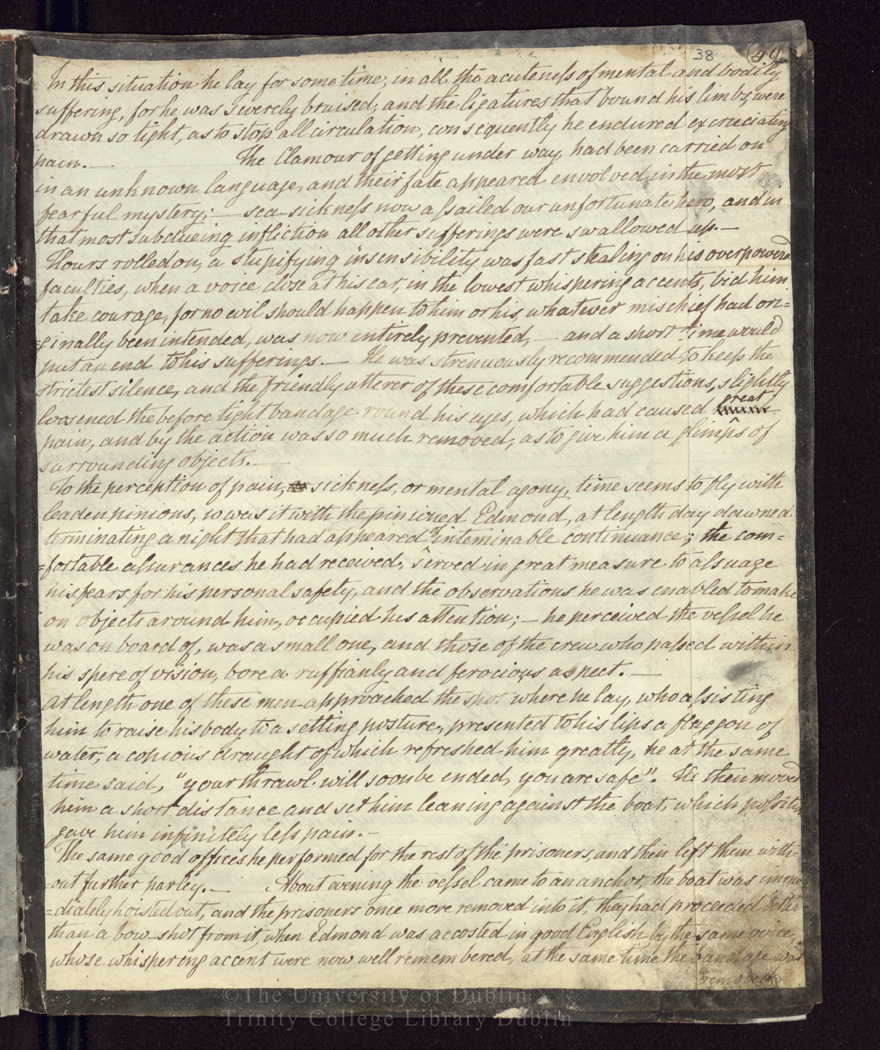 38 (49)
In this situation he lay for some time, in all the acuteness of mental and bodily
suffering, for he was severely bruised, and the ligatures that bound his limbs were
drawn so tight, as to stop all circulation, consequently he endured excruciating
pain. — The Clamour of getting under way, had been carried on
in an unknown language, and their fate appeared envolved in the most
fearful mystery; — sea-sickness now assailed our unfortunate hero, and in
that most subdueing infliction all other sufferings were swallowed up. —
Hours rolled on, a stupifying insensibility was fast stealing on his overpowered
faculties, when a voice close at his ear, in the lowest whispering accents, bid him
take courage, for no evil should happen to him or his, whatever mischief had ori=
=ginally been intended, was now entirely prevented, — and a short time would
put an end to his sufferings. — He was strenuously recommended to keep the
strictest silence, and the friendly utterer of these comfortable suggestions, slightly
loosened the before tight bandage round his eyes, which had caused great
pain, and by the action was so much removed, as to give him a glimps of
surrounding objects. —
To the perception of pain, sickness, or mental agony, time seems to fly with
leaden pinions, so was it with the pinioned Edmond, at length day dawned
terminating a night that had appeared of interminable continuance; the com=
=fortable assurances he had received, served in great measure to assuage
his fears for his personal safety, and the observations he was enabled to make
on objects around him, occupied his attention; — he perceived the vessel he
was on board of, was a small one, and those of the crew who passed within
his spere of vision, bore a ruffianly and ferocious aspect. —
At length one of these men approached the spot where he lay, who assisting
him to raise his body to a setting posture, presented to his lips a flaggon of
water, a copious draught of which refreshed him greatly, he at the same
time said, "your thrawl will soon be ended, you are safe". He then moved
him a short distance and set him leaning against the boat, which position
gave him infinitely less pain. —
The same good offices he performed for the rest of the prisoners, and then left them with=
out further parley. — About evening the vessel came to an anchor, the boat was imme
=diately hoisted out, and the prisoners once more removed into it, they had proceeded little
than a bow-shot from it, when Edmond was accosted in good English by the same voice,
whose whispering accent were now well remembered, at the same time the bandage was
removed
©The University of Dublin
Trinity College Library Dublin